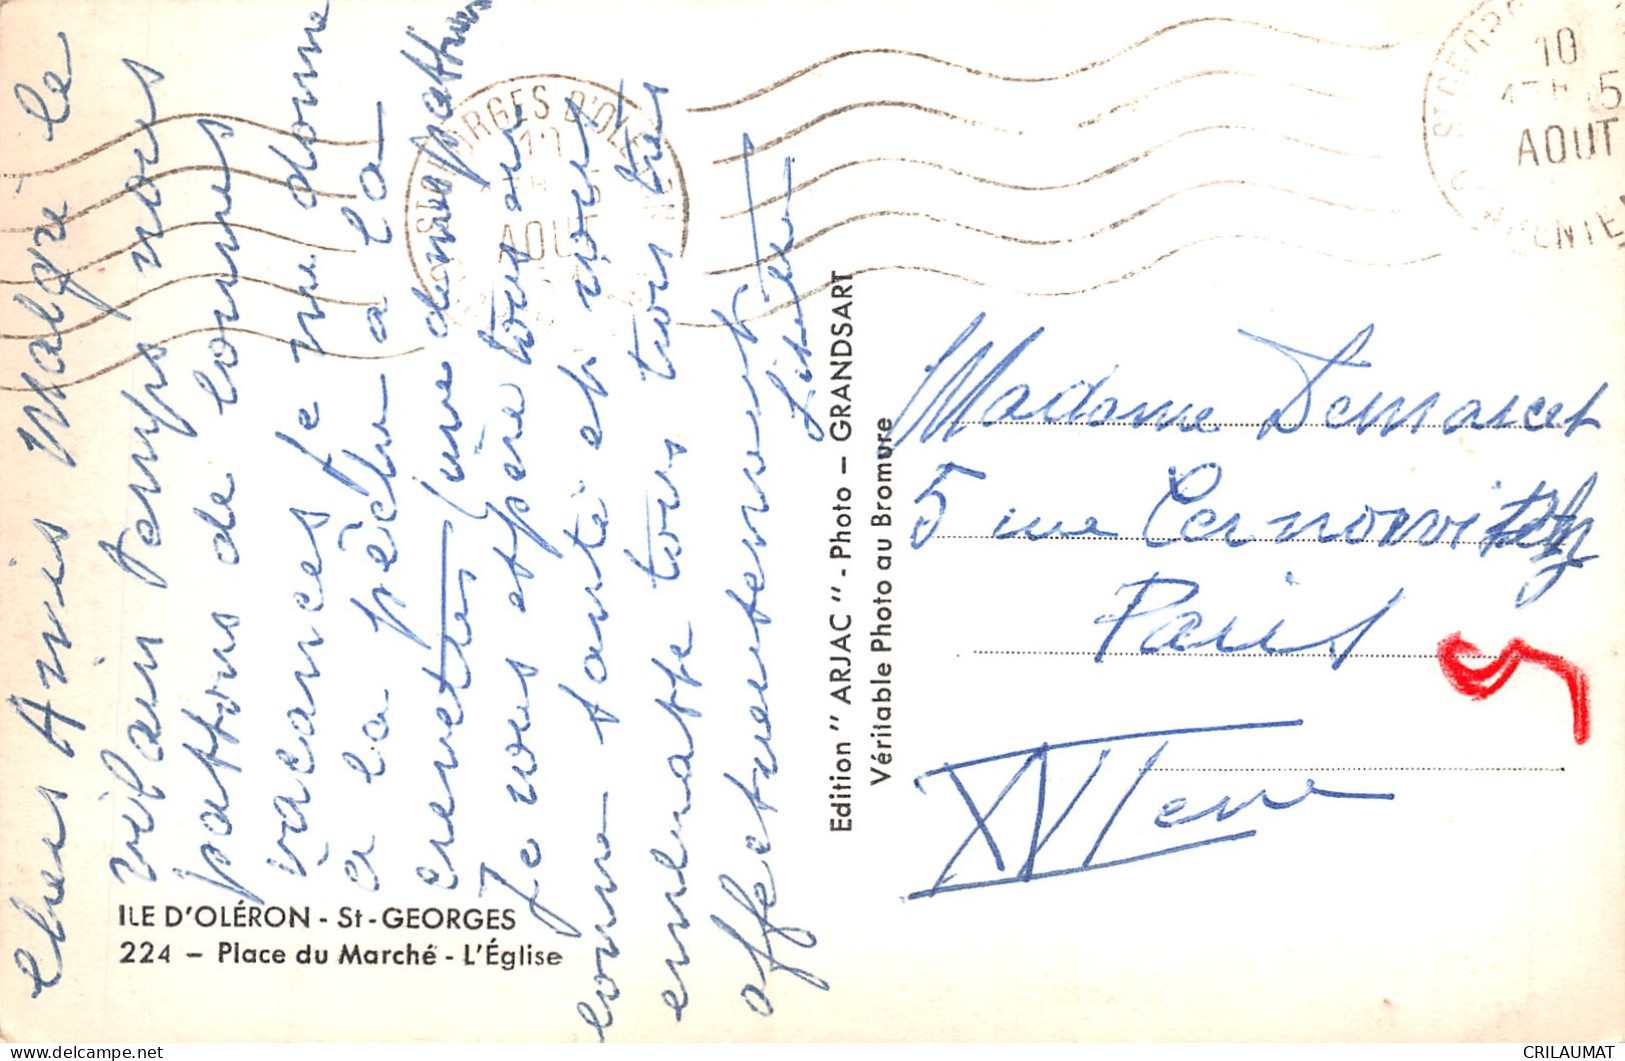 Chers Amis Malgré le
vilain Temps nous
passons de bonnes
vacances Je me donne
à la pêche à la
crevettes une demi passion
Je vous espère tous en
bonne santé et vous
embrasse tous tous très
affectueusement
ILE D'OLÉRON - St-GEORGES
224 – Place du Marché - L'Église
Edition "ARJAC" - Photo – GRANDSART
Véritable Photo au Bromure
ST GEORGES D'OLERON
10
AOUT
Madame Demarcet
5 rue Cernovitz
Paris
XVIeme
CRILAUMAT